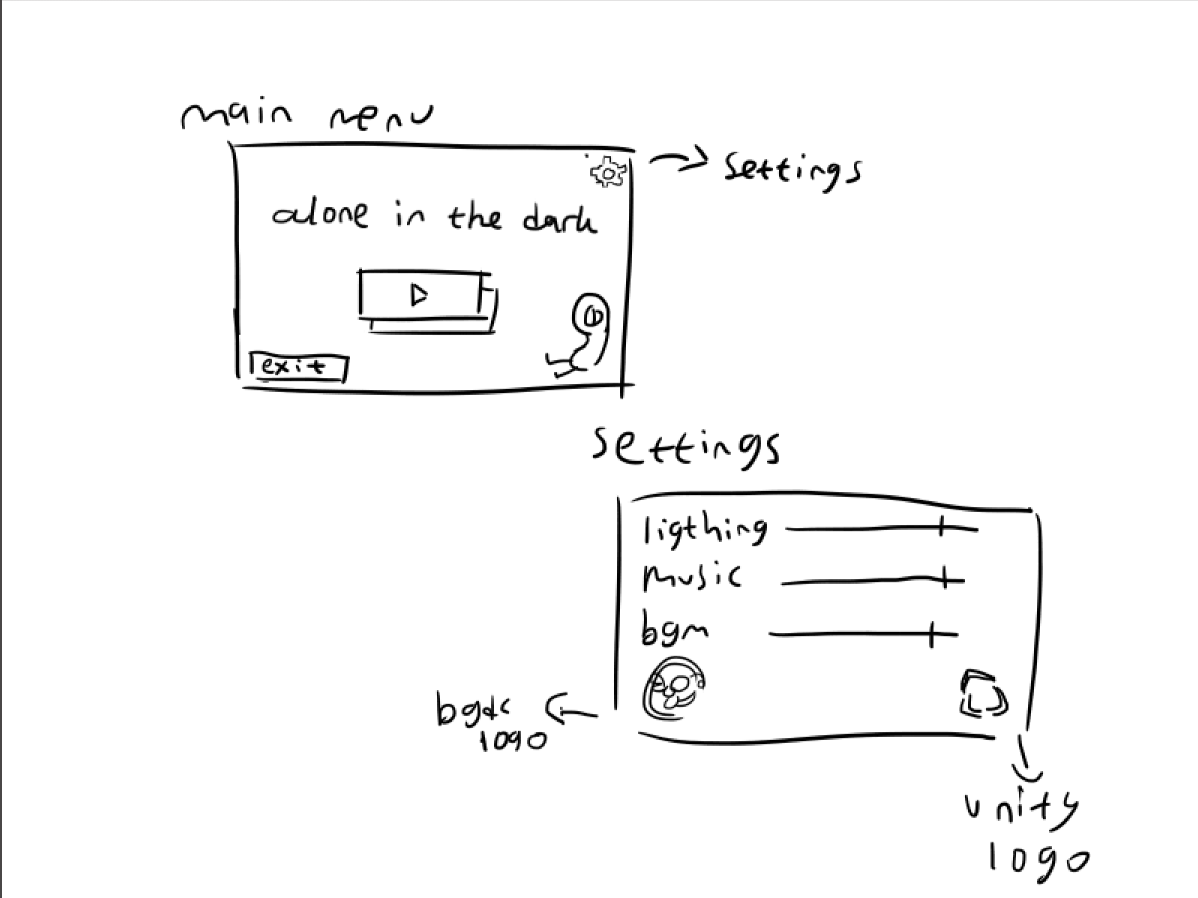 main menu
settings
alone in the dark
exit
settings
ligthing
music
bgm
bgdc
logo
unity
logo